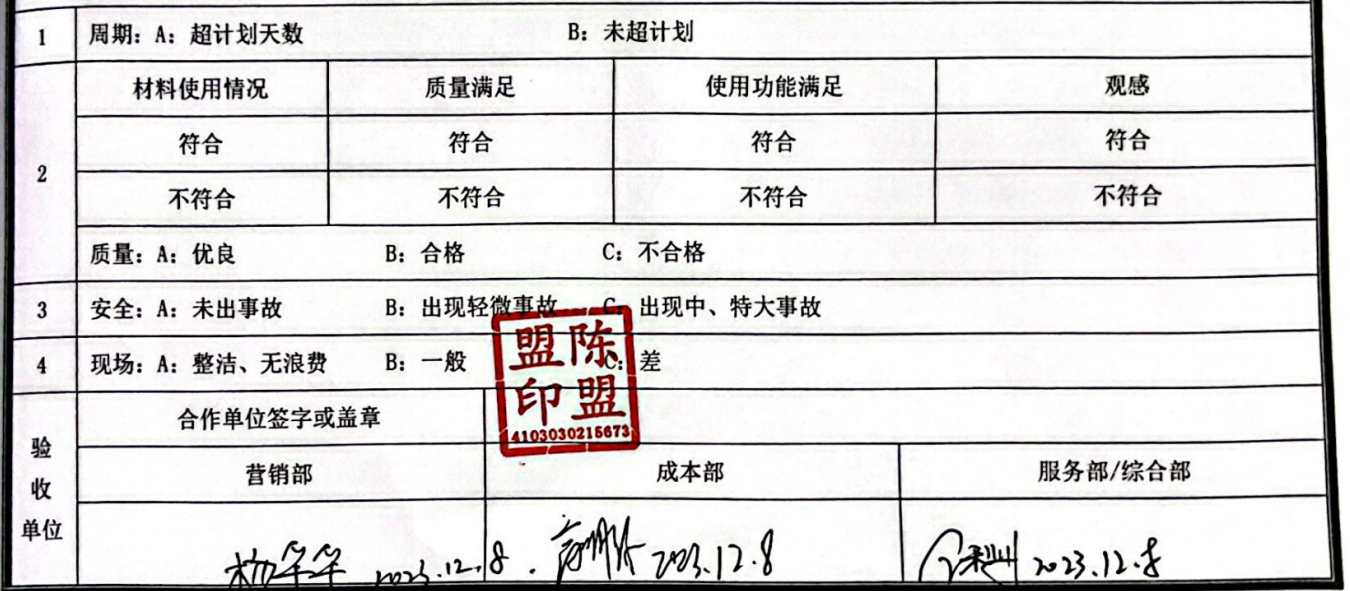 1 周期：A：超计划天数 B：未超计划
材料使用情况 质量满足 使用功能满足 观感
符合 符合 符合 符合
2
不符合 不符合 不符合 不符合
质量：A：优良 B：合格 C：不合格
3 安全：A：未出事故 B：出现轻微事故 C：出现中、特大事故
4 现场：A：整洁、无浪费 B：一般 C：差
陈盟
盟印
4103030215673
合作单位签字或盖章
验收单位
营销部 成本部 服务部/综合部
2023.12.8. 2023.12.8 2023.12.8